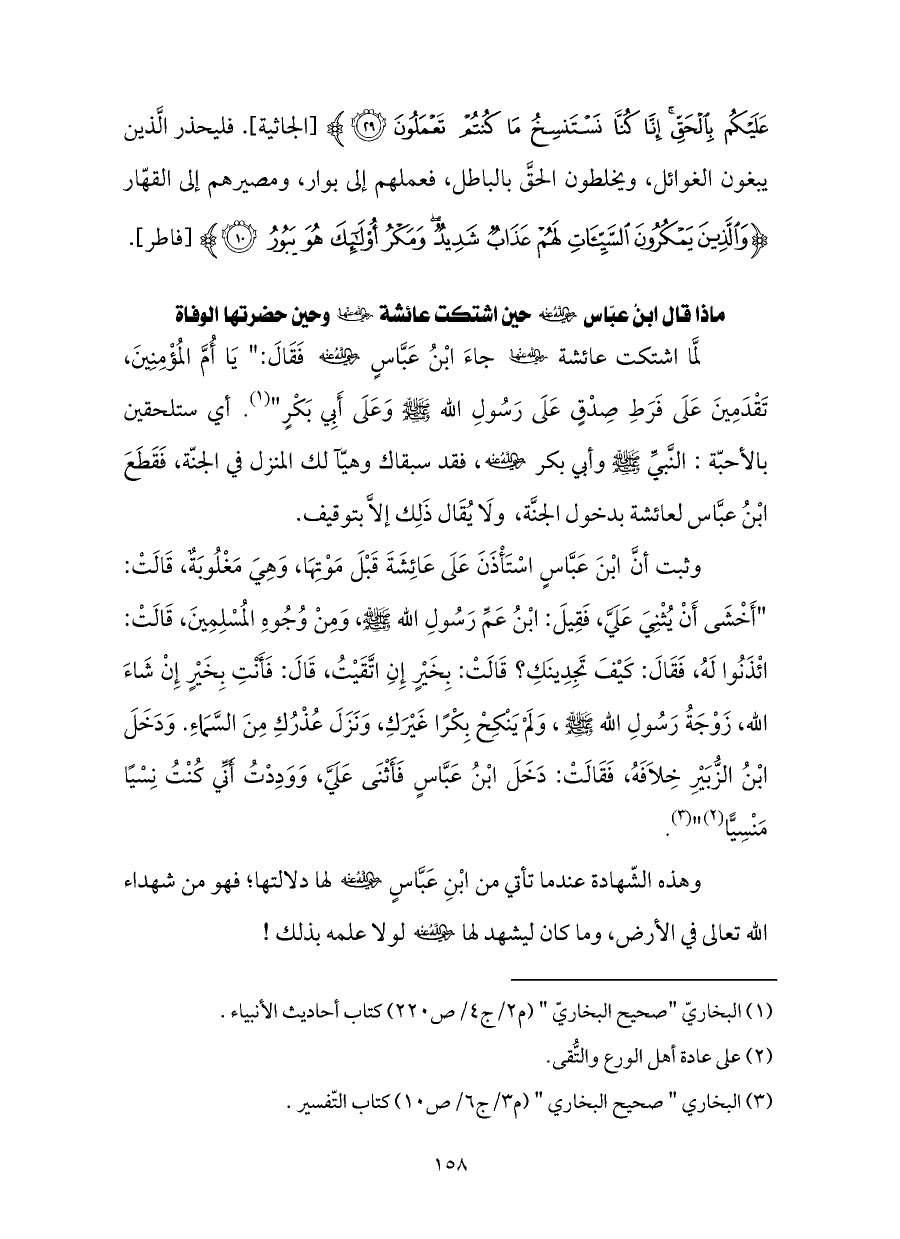 عَلَيْكُم بِٱلْحَقِّ ۚ إِنَّا كُنَّا نَسْتَنسِخُ مَا كُنتُمْ تَعْمَلُونَ ۝٢٩ ﴾ [الجاثية]. فليحذر الَّذين
يبغون الغوائل، ويخلطون الحقَّ بالباطل، فعملهم إلى بوار، ومصيرهم إلى القهّار
﴿ وَٱلَّذِينَ يَمْكُرُونَ ٱلسَّيِّـَٔاتِ لَهُمْ عَذَابٌ شَدِيدٌ ۖ وَمَكْرُ أُو۟لَـٰٓئِكَ هُوَ يَبُورُ ۝١٠ ﴾ [فاطر].
ماذا قال ابنُ عبّاس رضي الله عنه حين اشتكت عائشة رضي الله عنها وحين حضرتها الوفاة
لَمَّا اشتكت عائشة رضي الله عنها جاءَ ابْنُ عَبَّاسٍ رضي الله عنه فَقَالَ:" يَا أُمَّ الْمُؤْمِنِينَ،
تَقْدَمِينَ عَلَى فَرَطِ صِدْقٍ عَلَى رَسُولِ الله ﷺ وَعَلَى أَبِي بَكْرٍ"(١). أي ستلحقين
بالأحبّة : النَّبيِّ ﷺ وأبي بكر رضي الله عنه، فقد سبقاك وهيّآ لك المنزل في الجنّة، فَقَطَعَ
ابْنُ عبَّاس لعائشة بدخول الجنَّة، ولَا يُقَال ذَلِك إلاَّ بتوقيف.
وثبت أنَّ ابْنَ عَبَّاسٍ اسْتَأْذَنَ عَلَى عَائِشَةَ قَبْلَ مَوْتِهَا، وَهِيَ مَغْلُوبَةٌ، قَالَتْ:
"أَخْشَى أَنْ يُثْنِيَ عَلَيَّ، فَقِيلَ: ابْنُ عَمِّ رَسُولِ الله ﷺ، وَمِنْ وُجُوهِ الْمُسْلِمِينَ، قَالَتْ:
ائْذَنُوا لَهُ، فَقَالَ: كَيْفَ تَجِدِينَكِ؟ قَالَتْ: بِخَيْرٍ إِنِ اتَّقَيْتُ، قَالَ: فَأَنْتِ بِخَيْرٍ إِنْ شَاءَ
الله، زَوْجَةُ رَسُولِ الله ﷺ ، وَلَمْ يَنْكِحْ بِكْرًا غَيْرَكِ، وَنَزَلَ عُذْرُكِ مِنَ السَّمَاءِ. وَدَخَلَ
ابْنُ الزُّبَيْرِ خِلاَفَهُ، فَقَالَتْ: دَخَلَ ابْنُ عَبَّاسٍ فَأَثْنَى عَلَيَّ، وَوَدِدْتُ أَنِّي كُنْتُ نِسْيًا
مَنْسِيًّا(٢)"(٣).
وهذه الشّهادة عندما تأتي من ابْنِ عَبَّاسٍ رضي الله عنه لها دلالتها؛ فهو من شهداء
الله تعالى في الأرض، وما كان ليشهد لها رضي الله عنه لولا علمه بذلك !
(١) البخاريّ "صحيح البخاريّ " (م٢/ ج٤/ ص٢٢٠) كتاب أحاديث الأنبياء .
(٢) على عادة أهل الورع والتُّقى.
(٣) البخاري " صحيح البخاري " (م٣/ ج٦/ ص١٠) كتاب التّفسير .
١٥٨